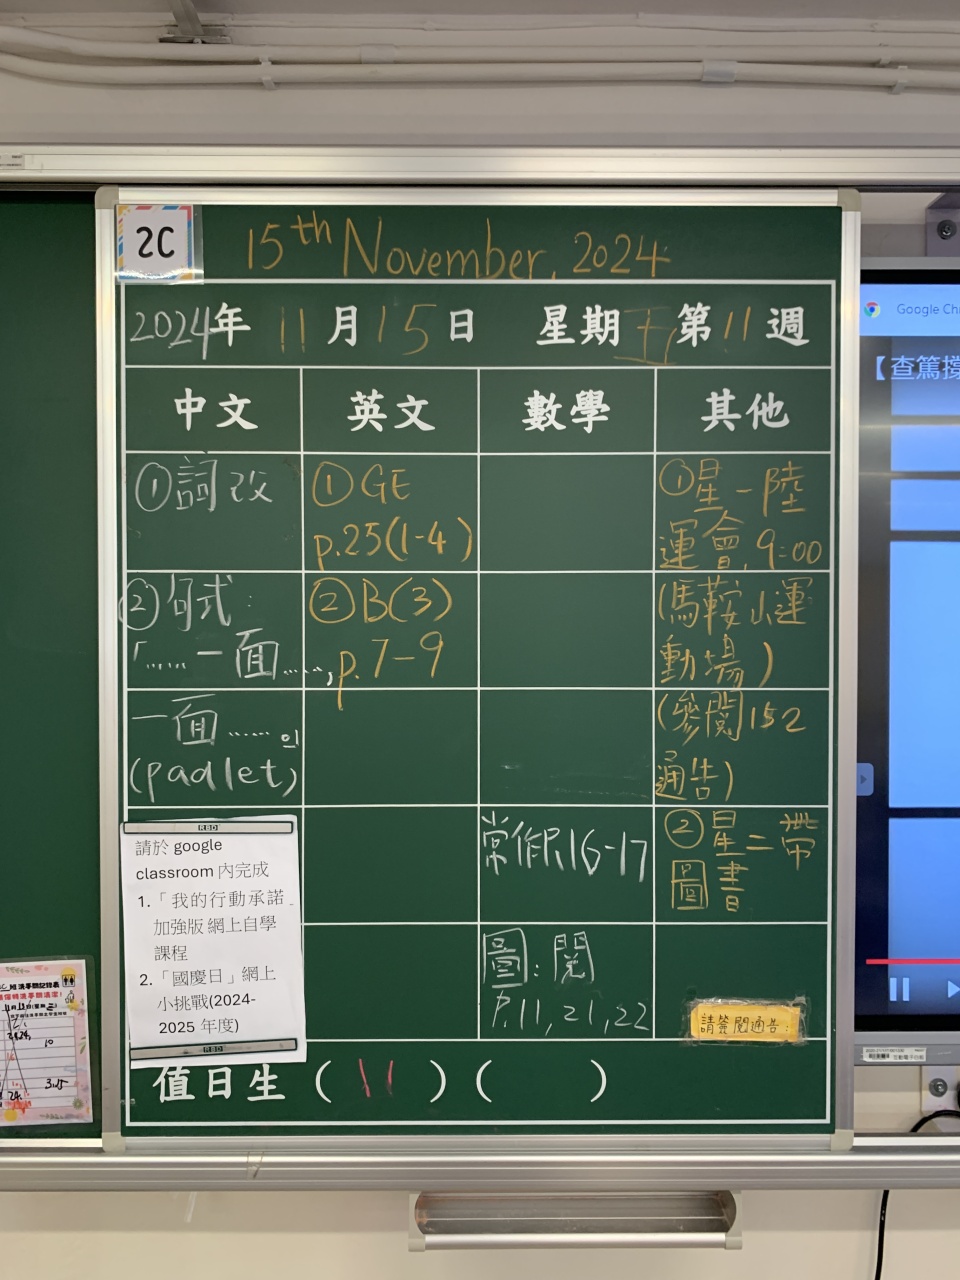 2C
15th November, 2024
2024年 11月15日 星期五 第11週
中文 英文 數學 其他
①詞改
②句式:
「……一面……,
一面……。」
(padlet)
請於 google
classroom 內完成
1.「我的行動承諾
加強版 網上自學
課程
2.「國慶日」網上
小挑戰(2024-
2025 年度)
①GE
p.25(1-4)
②B(3)
p.7-9
常作P.16-17
圖:閱
P.11,21,22
①星一陸
運會,9:00
(馬鞍山運
動場)
(參閱152
通告)
②星二帶
圖書
請簽閱通告:
值日生 ( 11 ) ( )
Google Ch
【查篤撐